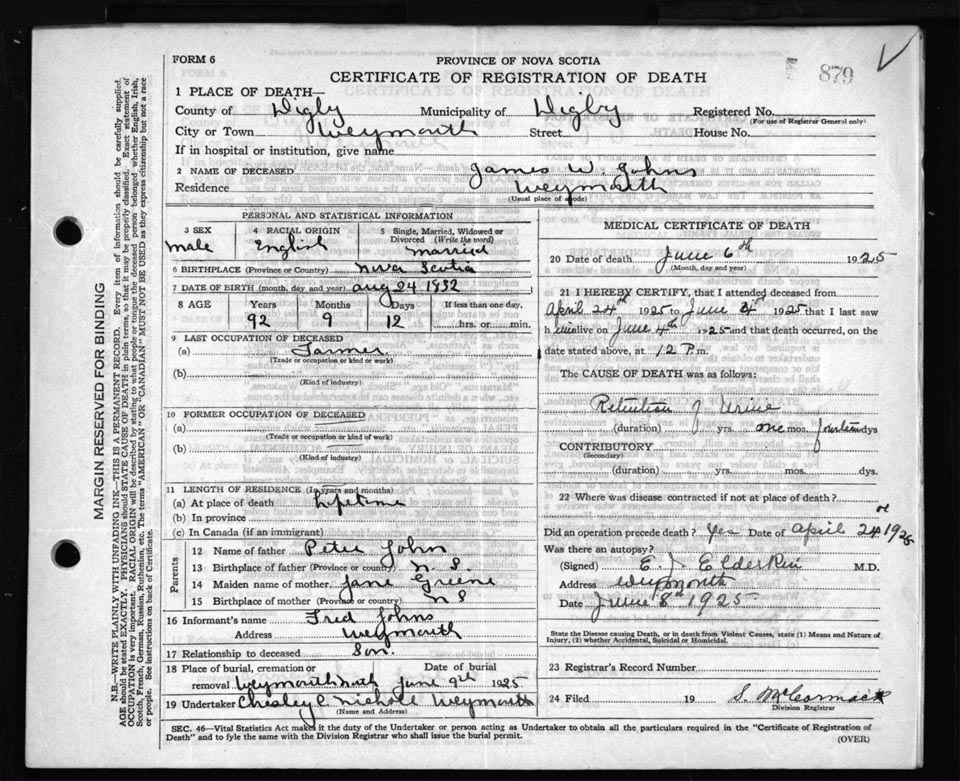 FORM 6
PROVINCE OF NOVA SCOTIA
CERTIFICATE OF REGISTRATION OF DEATH
879
1 PLACE OF DEATH—
County of Digby Municipality of Digby Registered No.
(For use of Registrar General only)
City or Town Weymouth Street House No.
If in hospital or institution, give name
2 NAME OF DECEASED James W. Johns
Residence Weymouth
(Usual place of abode)
PERSONAL AND STATISTICAL INFORMATION
3 SEX 4 RACIAL ORIGIN 5 Single, Married, Widowed or Divorced (Write the word)
Male English Married
6 BIRTHPLACE (Province or Country) Nova Scotia
7 DATE OF BIRTH (month, day and year) Aug 24 1832
8 AGE Years Months Days If less than one day,
92 9 12 hrs. or min.
9 LAST OCCUPATION OF DECEASED
(a) Farmer
(Trade or occupation or kind of work)
(b)
(Kind of industry)
10 FORMER OCCUPATION OF DECEASED
(a)
(Trade or occupation or kind of work)
(b)
(Kind of industry)
11 LENGTH OF RESIDENCE (In years and months)
(a) At place of death Lifetime
(b) In province
(c) In Canada (if an immigrant)
Parents
12 Name of father Peter John
13 Birthplace of father (Province or country) N. S.
14 Maiden name of mother Jane Greene
15 Birthplace of mother (Province or country) N S
16 Informant's name Fred Johns
Address Weymouth
17 Relationship to deceased Son.
18 Place of burial, cremation or removal Date of burial
Weymouth North June 9th 1925
19 Undertaker Chesley C. Nichols Weymouth
(Name and Address)
MEDICAL CERTIFICATE OF DEATH
20 Date of death June 6th 1925
(Month, day and year)
21 I HEREBY CERTIFY, that I attended deceased from
April 24th 1925 to June 4th 1925 that I last saw
h im alive on June 4th 1925 and that death occurred, on the
date stated above, at 12 P.m.
The CAUSE OF DEATH was as follows:
Retention of Urine
(duration) yrs. one mos. fourteen dys
CONTRIBUTORY
(Secondary)
(duration) yrs. mos. dys.
22 Where was disease contracted if not at place of death?
Did an operation precede death? Yes Date of April 24 1925
Was there an autopsy?
(Signed) E. J. Elderkin M.D.
Address Weymouth
Date June 8th 1925
State the Disease causing Death, or in death from Violent Causes, state (1) Means and Nature of Injury, (2) whether Accidental, Suicidal or Homicidal.
23 Registrar's Record Number
24 Filed 19 S. McCormack
Division Registrar
SEC. 46—Vital Statistics Act makes it the duty of the Undertaker or person acting as Undertaker to obtain all the particulars required in the "Certificate of Registration of
Death" and to fyle the same with the Division Registrar who shall issue the burial permit.
(OVER)
MARGIN RESERVED FOR BINDING
N.B.—WRITE PLAINLY WITH UNFADING INK—THIS IS A PERMANENT RECORD. Every item of information should be carefully supplied.
AGE should be stated EXACTLY. PHYSICIANS should STATE CAUSE OF DEATH in plain terms, so that it may be properly classified. Exact statement of
OCCUPATION is very important. RACIAL ORIGIN will be described by stating to what people or tongue the deceased person belonged whether English, Irish,
Scotch, French, German, Russian, Ruthenian, etc. The terms "AMERICAN" OR "CANADIAN" MUST NOT BE USED as they express citizenship but not a race
or people. See instructions on back of Certificate.